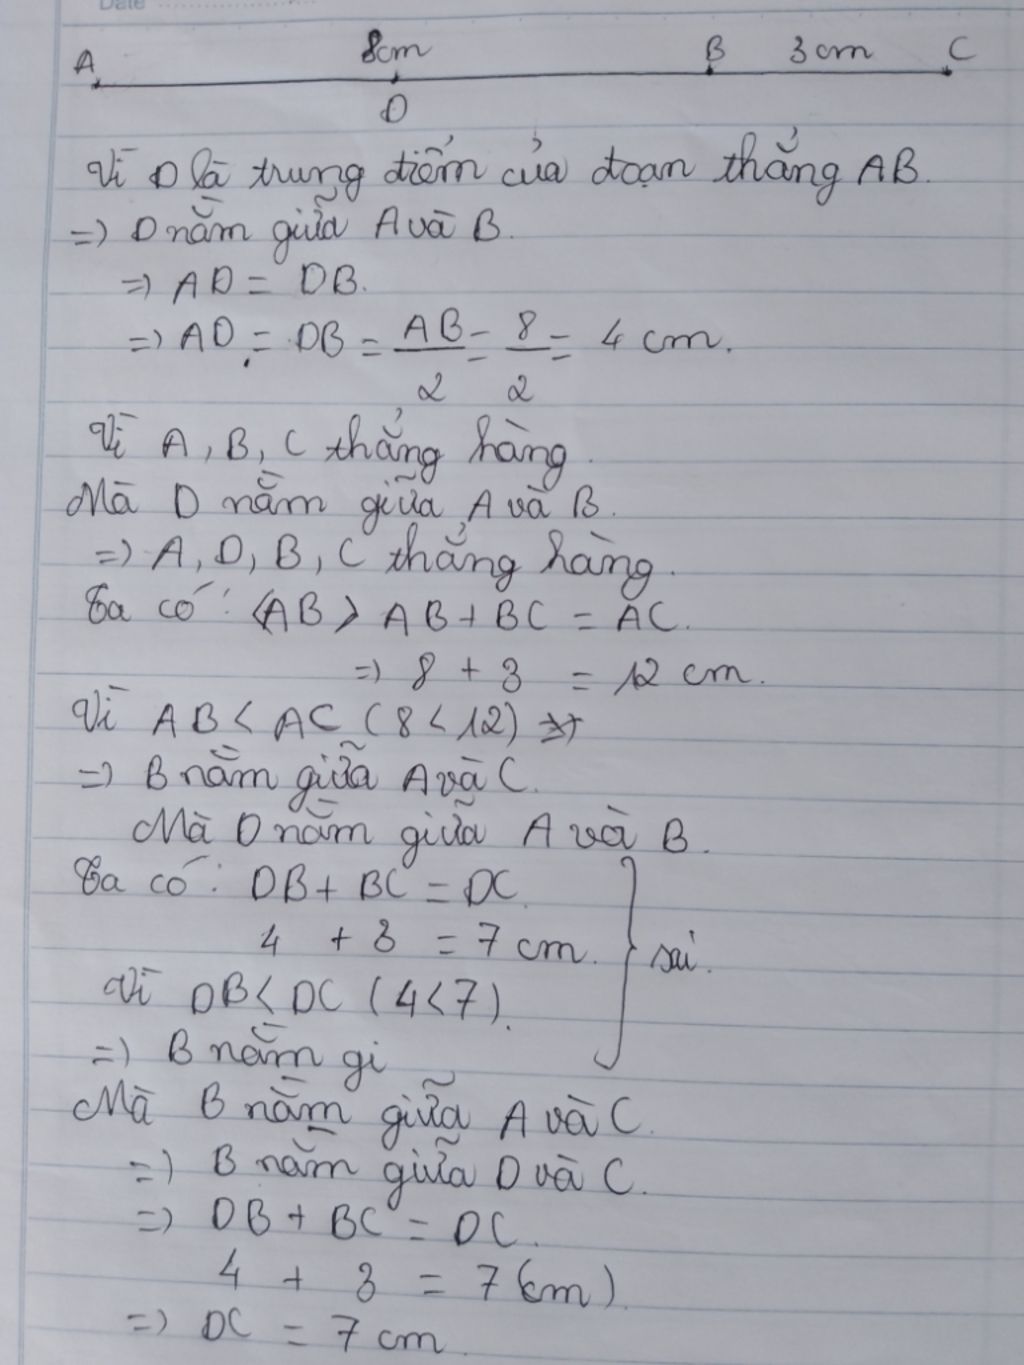 Date
A 8cm B 3cm C
D
Vì D là trung điểm của đoạn thẳng AB.
=> D nằm giữa A và B.
=> AD = DB.
=> AD = DB = AB/2 = 8/2 = 4 cm.
Vì A, B, C thẳng hàng.
Mà D nằm giữa A và B.
=> A, D, B, C thẳng hàng.
Ta có: <AB> AB + BC = AC.
=> 8 + 3 = 12 cm.
Vì AB < AC (8 < 12)
=> B nằm giữa A và C.
Mà D nằm giữa A và B.
Ta có: DB + BC = DC.
4 + 3 = 7 cm. sai.
Vì DB < DC (4 < 7).
=> B nằm gi
Mà B nằm giữa A và C.
=> B nằm giữa D và C.
=> DB + BC = DC.
4 + 3 = 7 (cm)
=> DC = 7 cm